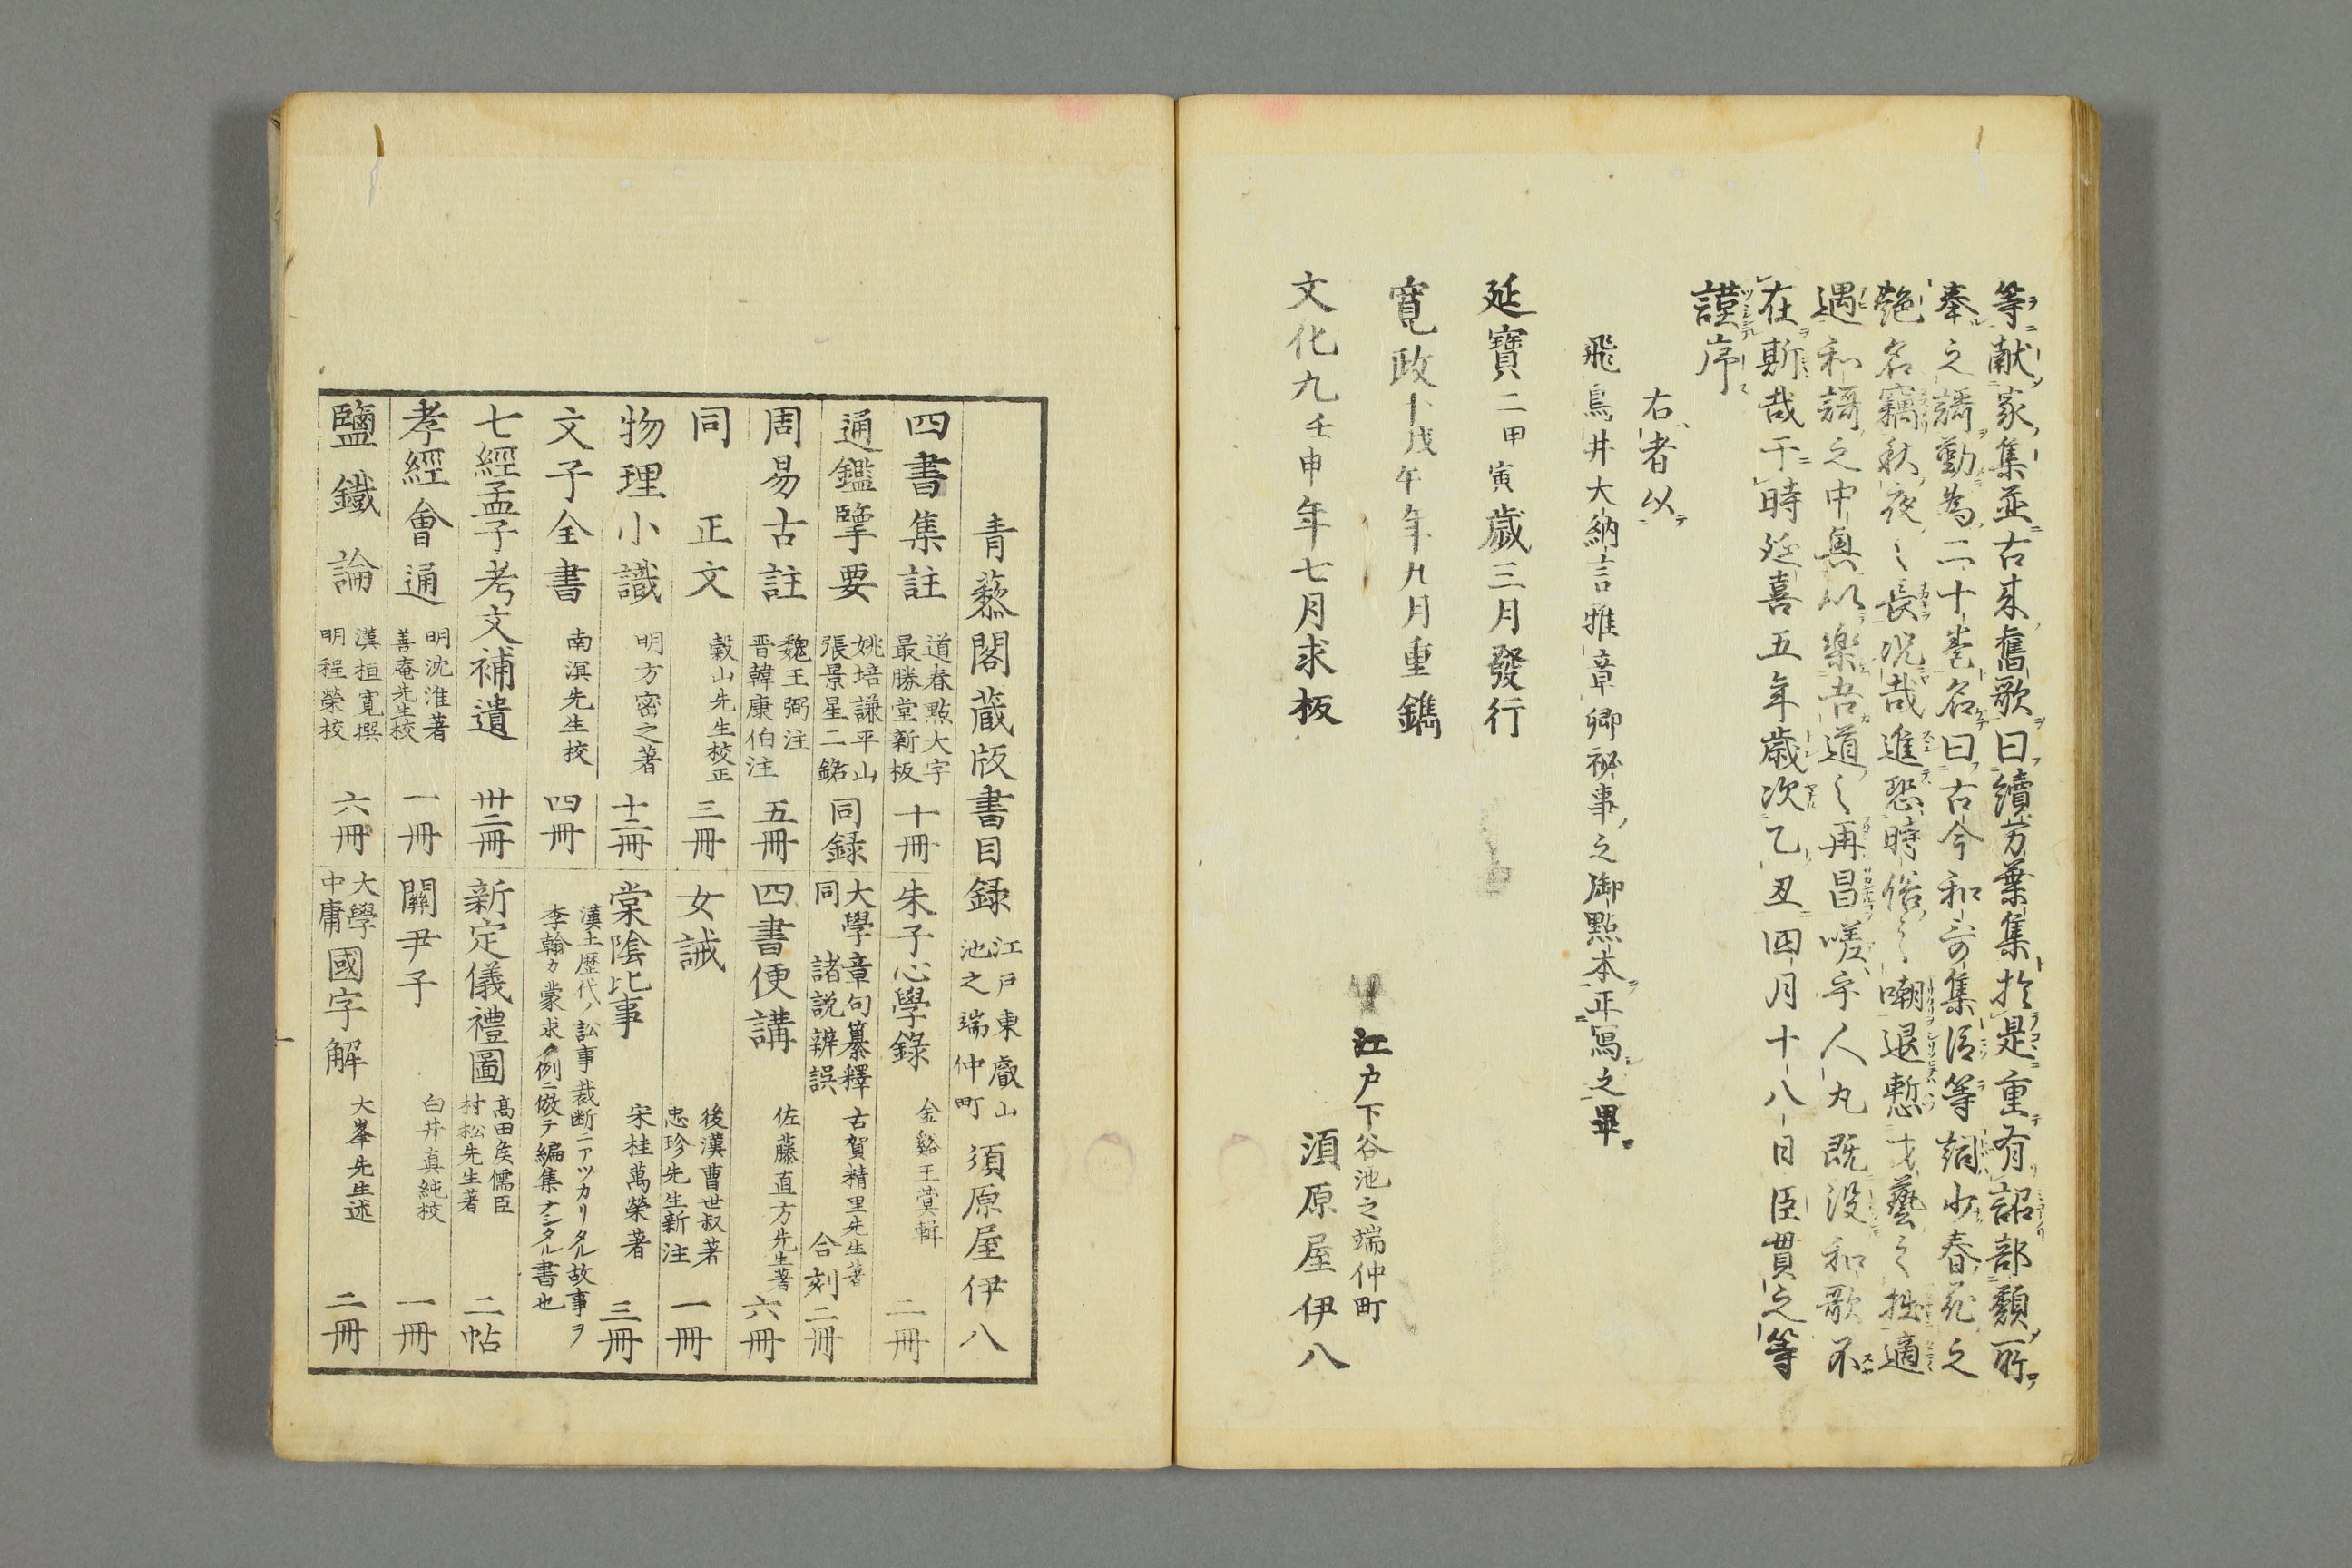 等献家集並古来舊歌曰續万葉集於是重有詔部類所
奉之謌勤為二十巻名曰古今和哥集臣等詞少春花之
艶名竊秋夜之長况哉進恐時俗之嘲退慙才藝之拙適
遇和謌之中興以樂吾道之再昌嗟乎人丸既没和歌不
在斯哉于時延喜五年歳次乙丑四月十八日臣貫之等
謹序
右者以
飛鳥井大納言雅章卿祕事之御點本正寫之畢
延寶二甲寅歳三月發行
寛政十戊午年九月重鐫
文化九壬申年七月求板
江戸下谷池之端仲町
須原屋伊八
青藜閣蔵版書目録 江戸東叡山池之端仲町 須原屋伊八
四書集註 道春點大字最勝堂新板 十冊
朱子心學錄 金谿王蓂輯 二冊
通鑑擥要 姚培謙平山張景星二銘 同録
大學章句纂釋 同諸説辨誤 古賀精里先生著 合刻二冊
周易古註 魏王弼注 晋韓康伯注 五冊
四書便講 佐藤直方先生著 六冊
同正文 穀山先生校正 三冊
女誡 後漢曹世叔著 忠珍先生新注 一冊
物理小識 明方密之著 十二冊
棠陰比事 宋桂萬榮著 三冊
漢土歴代ノ訟事裁断ニアツカリタル故事ヲ
李翰カ蒙求ノ例ニ倣テ編集ナシタル書也
文子全書 南溟先生校 四冊
七經孟子考文補遺 卅二冊
新定儀禮圖 髙田矦儒臣村松先生著 二帖
孝經會通 明沈淮著 善庵先生校 一冊
關尹子 白井真純校 一冊
鹽鐵論 漢桓寛撰 明程榮校 六冊
大學中庸國字解 大峯先生述 二冊